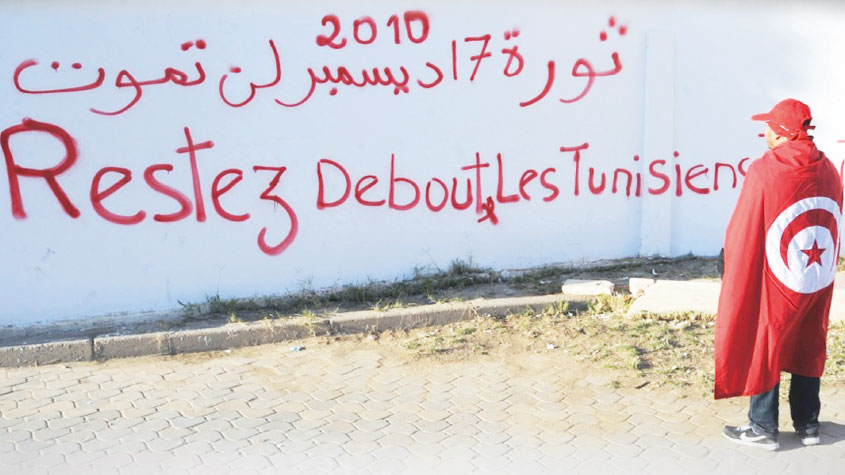 ثورة 17 ديسمبر 2010 لن تموت
Restez Debout Les Tunisiens